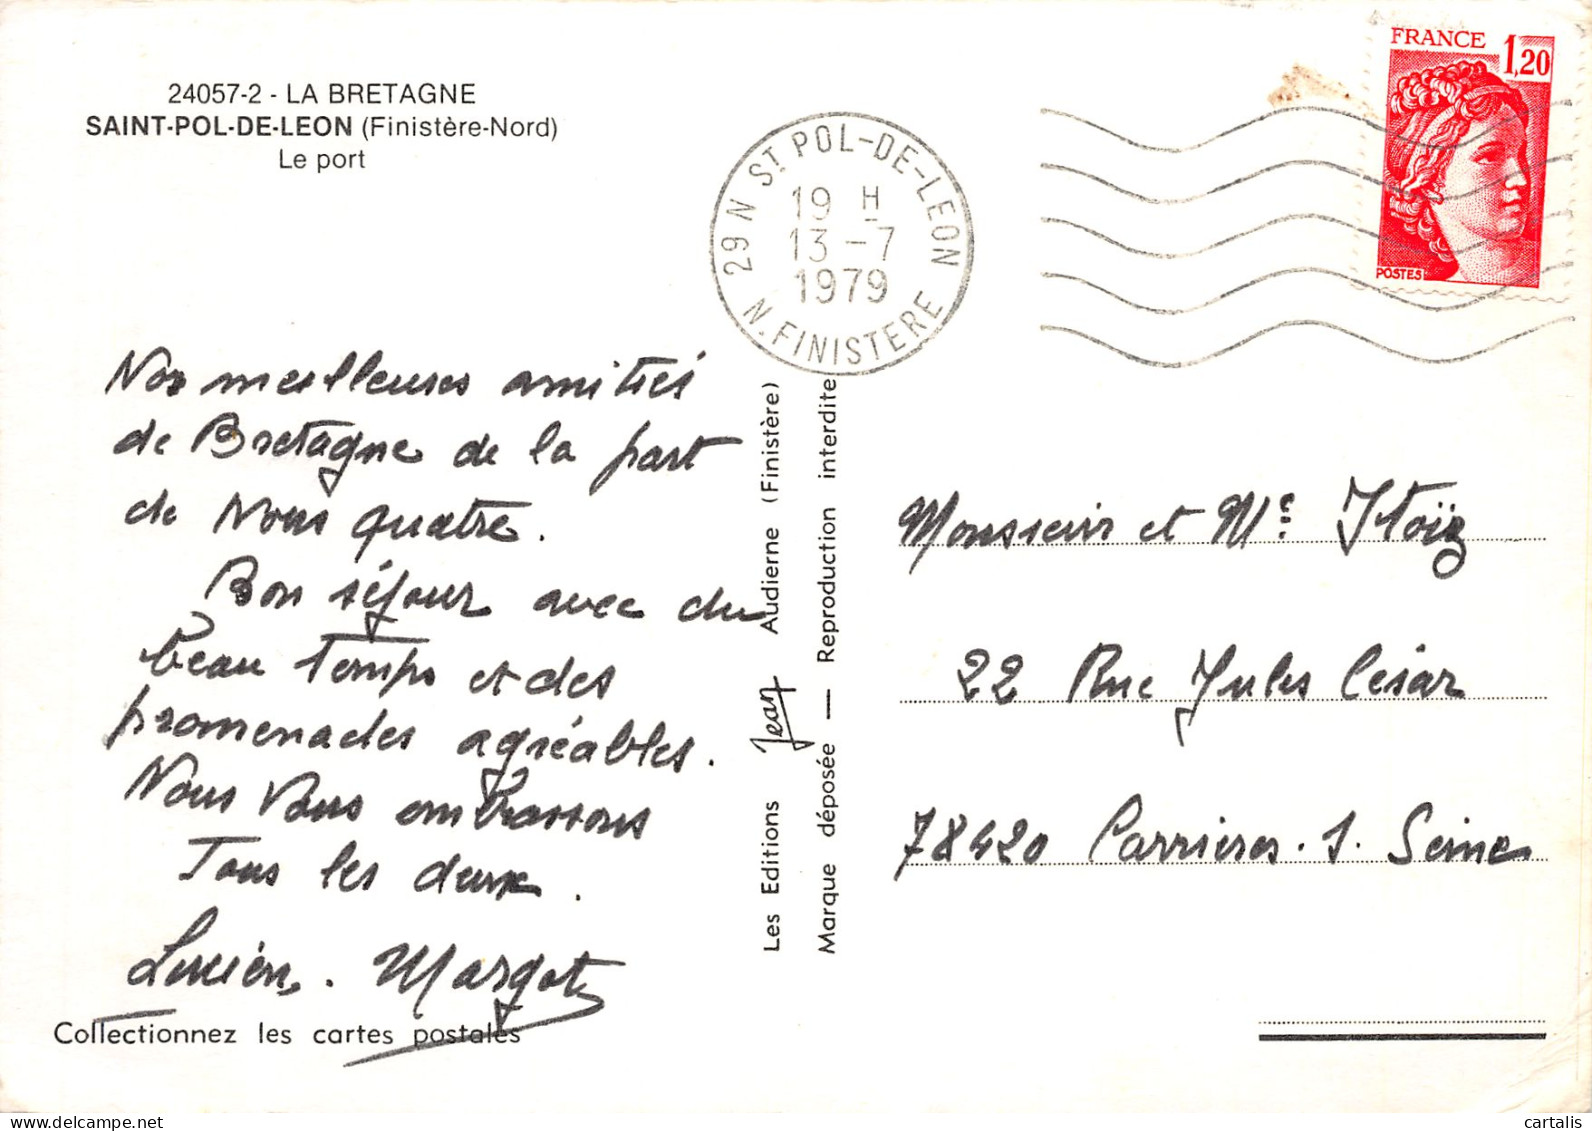 24057-2 - LA BRETAGNE
SAINT-POL-DE-LEON (Finistère-Nord)
Le port
29 N ST POL-DE-LEON
19 H
13 -7
1979
N. FINISTERE
FRANCE 1,20
POSTES
Nos meilleures amitiés
de Bretagne de la part
de Nous quatre.
Bon séjour avec du
beau temps et des
promenades agréables.
Nous Vous embrassons
Tous les deux.
Lucien. Margot
Collectionnez les cartes postales
Les Editions Jean Audierne (Finistère)
Marque déposée — Reproduction interdite
Monsieur et Me
22 Rue Jules César
78420 Carrières. s. Seine
cartalis